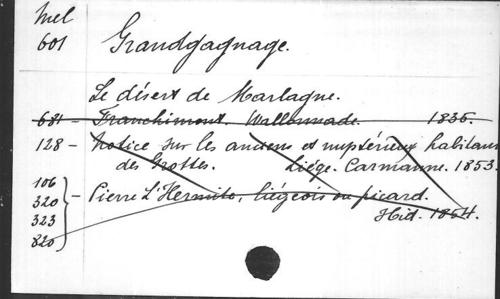 Mel
601
Grandgagnage.
Le désert de Marlagne.
681 - Franchimont. Wallonnade. 1835.
128 - Notice sur les anciens et mystérieux habitans
des Grottes. Liége. Carmanne. 1853.
106
320 - Pierre L'Hermite, liégeois ou picard.
323 Ibid. 1854.
820